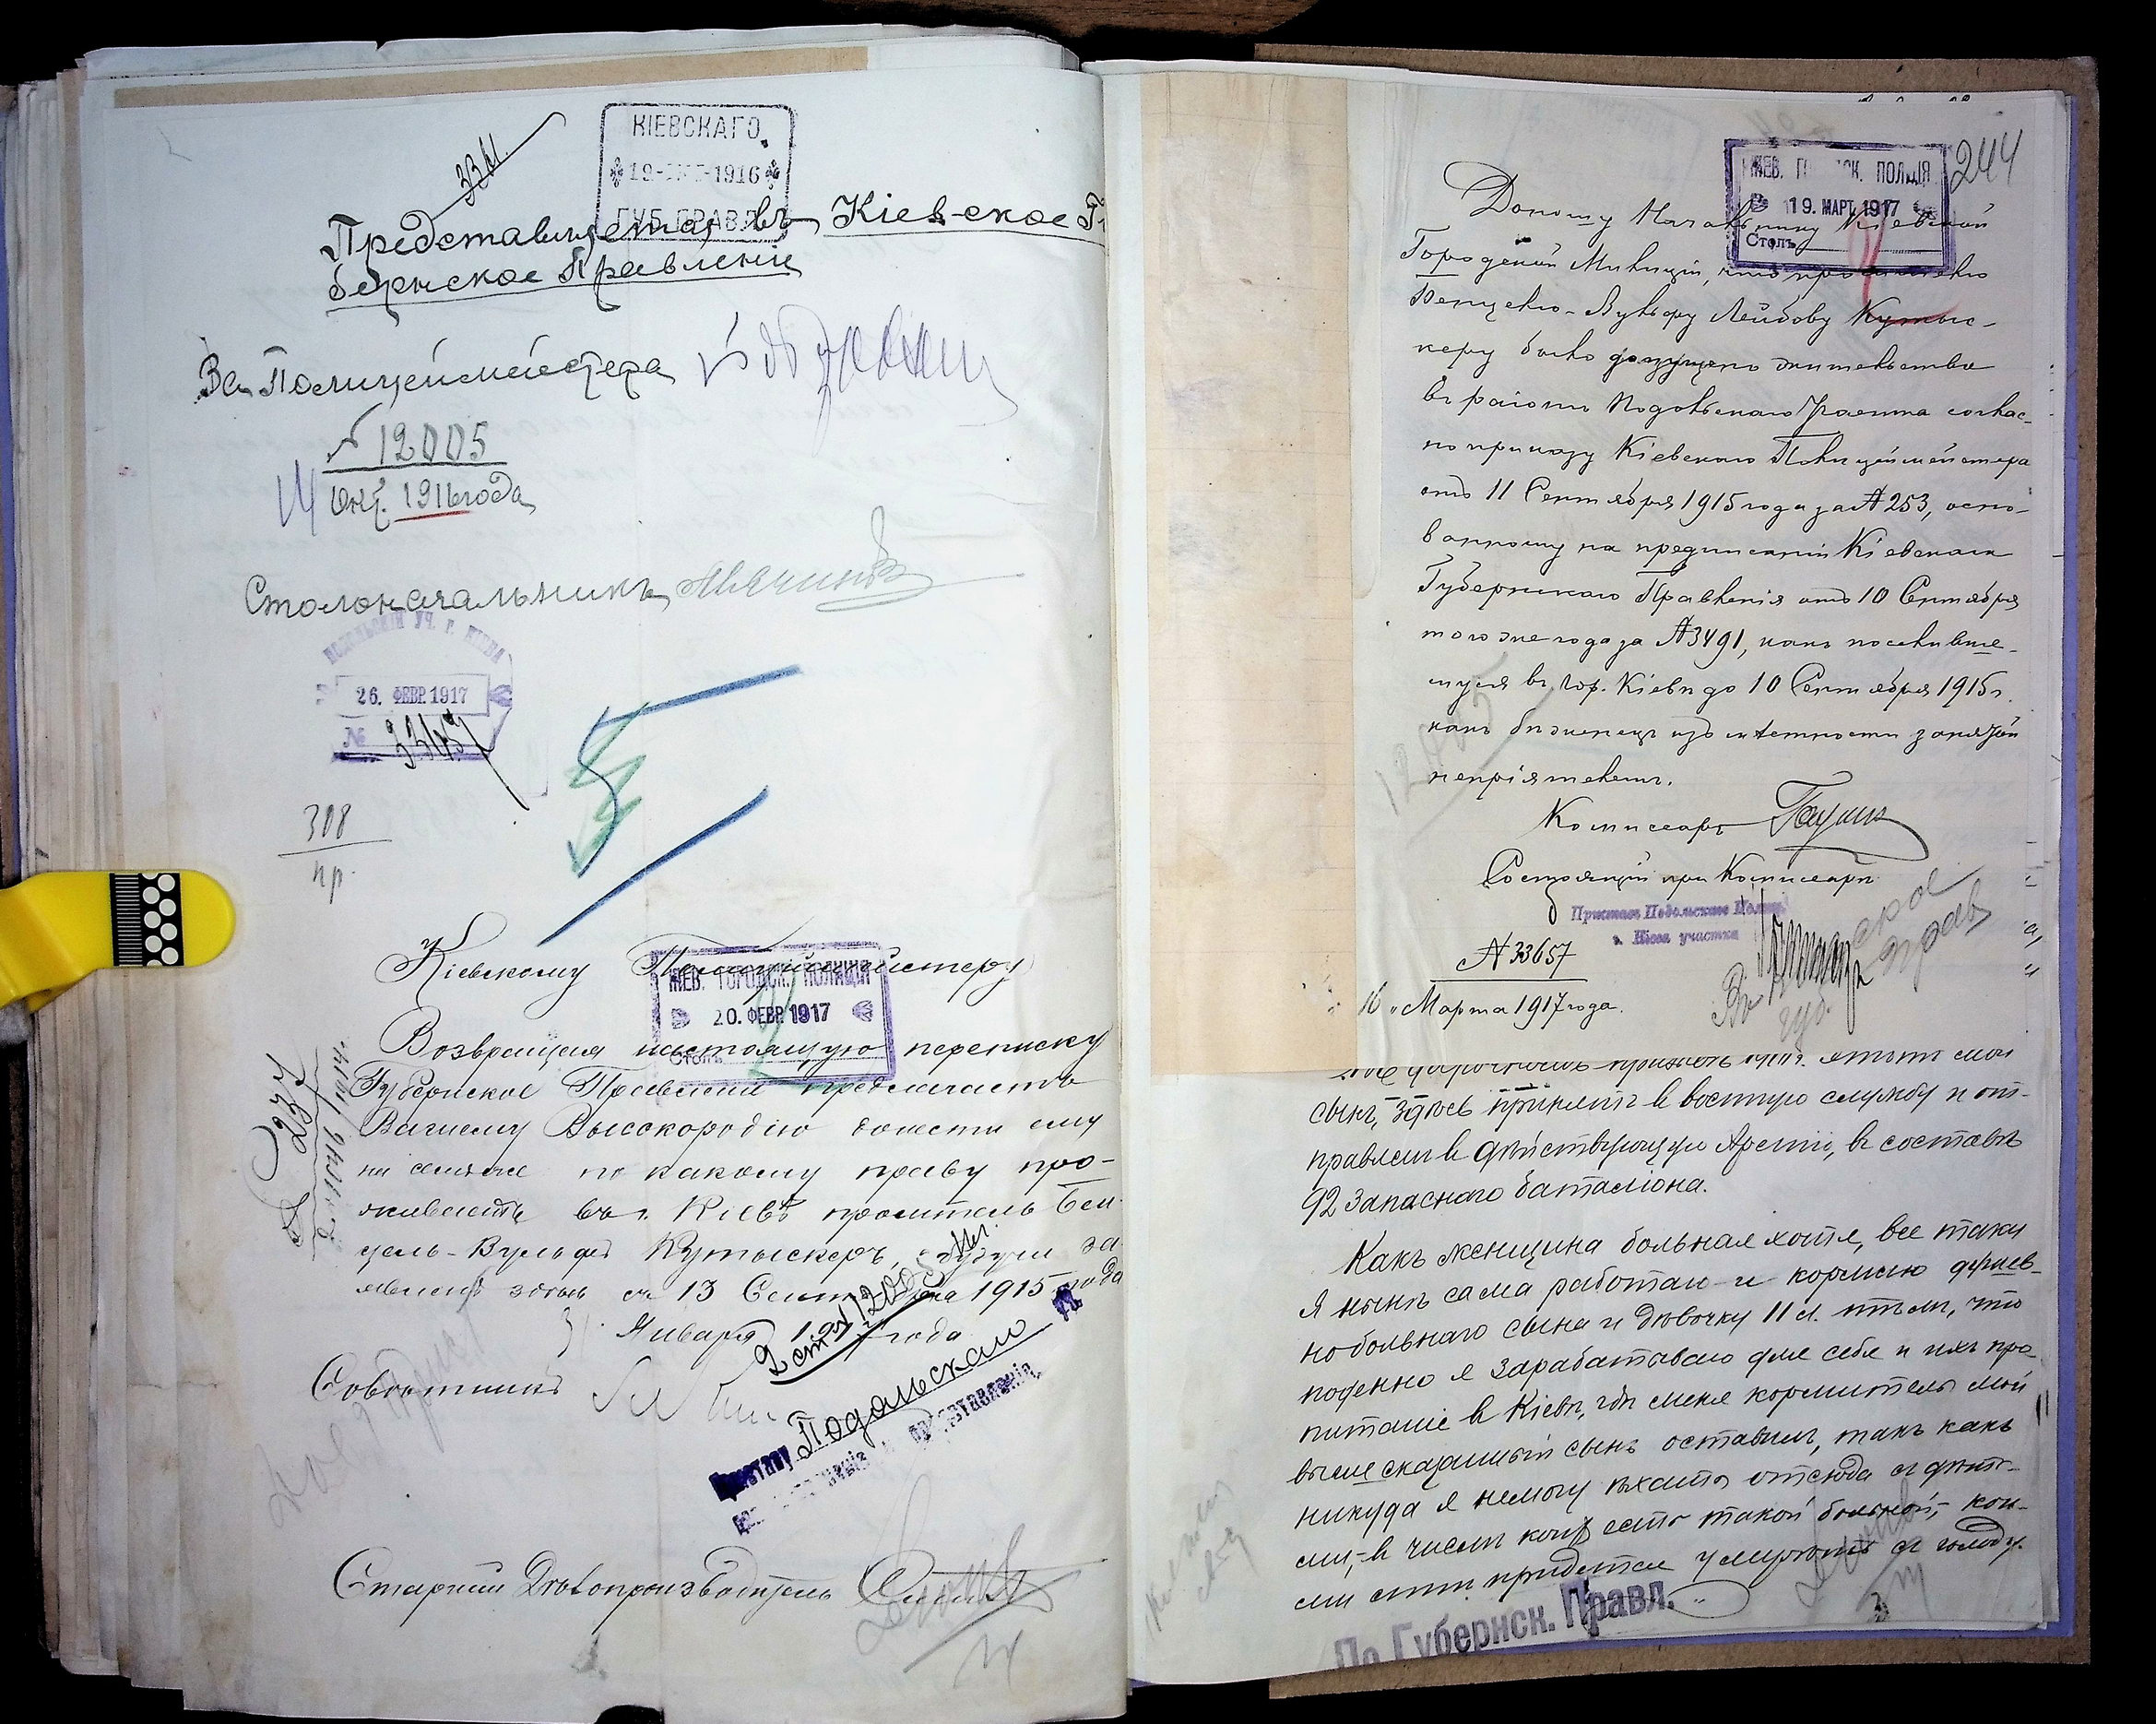 3361.
КІЕВСКАГО
1916
ГУБ. ПРАВЛ.
Представляется въ Кіевское Гу
бернское Правленіе
За Полицеймейстера
№ 12005
Окт. 1916 года
Столоначальникъ
ПОДОЛЬСКІЙ УЧ. Г. КІЕВА
26. ФЕВР. 1917
№ 33657
308
пр.
Кіевскому Полицеймейстеру
КІЕВ. ГОРОДСК. ПОЛИЦІЯ
20. ФЕВР. 1917
Столъ
Возвращая настоящую переписку
Губернское Правленіе предлагаетъ
Вашему Высокородію донести ему
по какому праву про-
живаетъ въ г. Кіевѣ проситель Бен-
цель-Вульфъ Кутыскеръ, будучи за-
явленъ здѣсь съ 13 Сентября 1915 года
Января 1917 года
№ 237
2 ст. 12005
Совѣтникъ
Приставу Подольскаго
Старшій Дѣлопроизводитель
244
КІЕВ. ГОРОДСК. ПОЛИЦІЯ
19. МАРТ. 1917
Столъ
Доношу Начальнику Кіевской
Городской Милиціи, что просителю
Бенцелю-Вульфу Лейбову Кутыс-
керу было допущено жительство
въ районѣ Подольскаго Участка соглас-
но приказу Кіевскаго Полицеймейстера
отъ 11 Сентября 1915 года за № 253, осно-
ванному на предписаніи Кіевскаго
Губернскаго Правленія отъ 10 Сентября
того же года за № 3491, какъ поселивше-
муся въ гор. Кіевѣ до 10 Сентября 1915 г.
какъ бѣженецъ изъ мѣстности занятой
непріятелемъ.
12005
Комиссаръ
Состоящій при Комиссарѣ
Приставъ Подольскаго Полиц.
г. Кіева участка
№ 33657
16 „ Марта 1917 года.
Въ
губ.
сынъ, здѣсь принятъ въ военную службу и от-
правленъ въ дѣйствующую Армію, въ составѣ
92 Запаснаго баталіона.
Какъ женщина больная хотя, все таки
я нынѣ сама работаю и кормлю душев-
но больнаго сына и дѣвочку 11 л. лѣтъ, что
поденно я зарабатываю для себя и ихъ про
питаніе въ Кіевѣ, гдѣ меня кормитель мой
выше сказанный сынъ оставилъ, такъ какъ
никуда я не могу ѣхать отсюда съ дѣть-
ми,-въ числѣ коихъ есть такой больной,-
придется умирать съ голоду.
По Губернск. Правл.